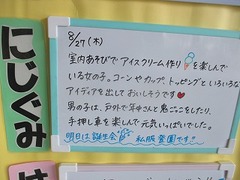 にじぐみ
8/27(木)
室内あそびでアイスクリーム作りを楽しんで
いる女の子。コーンやカップ、トッピングといろいろな
アイディアを出しておいしそうです♥
男の子は、戸外で年中さんと鬼ごっこをしたり、
手押し車を楽しんで元気いっぱいでした。
明日は誕生会 私服登園です!!
は